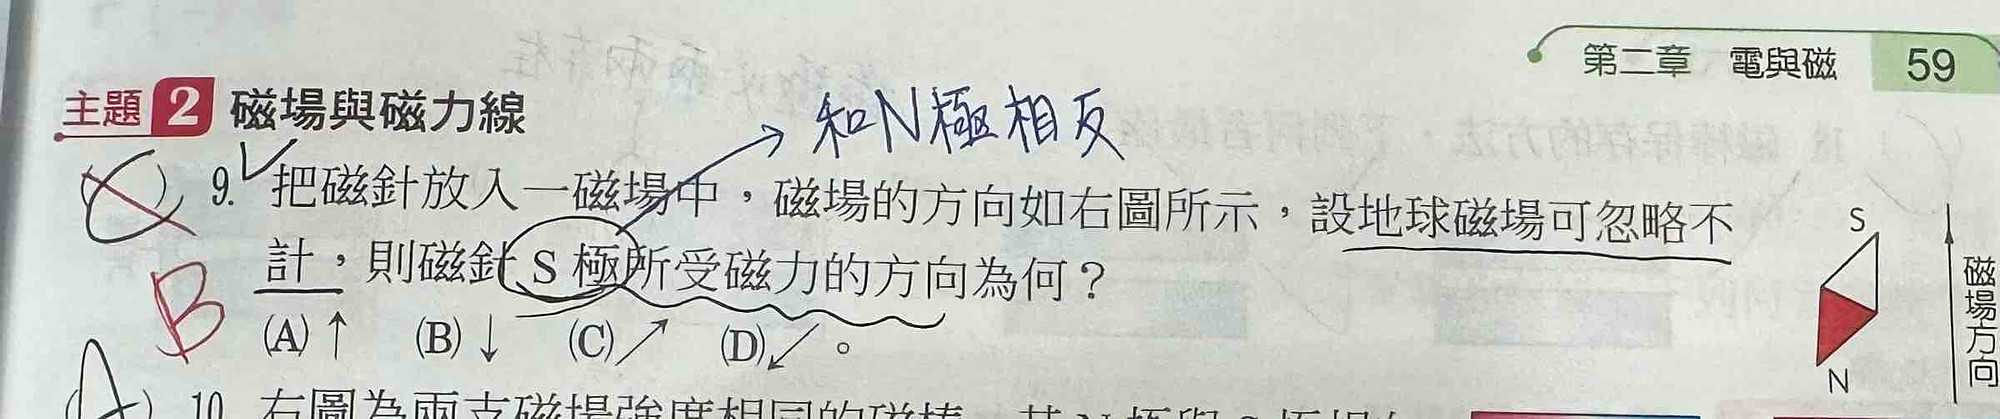 第二章 電與磁 59
主題2 磁場與磁力線
和N極相反
(C) 9. 把磁針放入一磁場中，磁場的方向如右圖所示，設地球磁場可忽略不
計，則磁針S極所受磁力的方向為何？
B
(A)↑ (B)↓ (C)↗ (D)↙。
S
N
磁場方向
(A) 10. 右圖為兩支磁場強度相同的磁棒